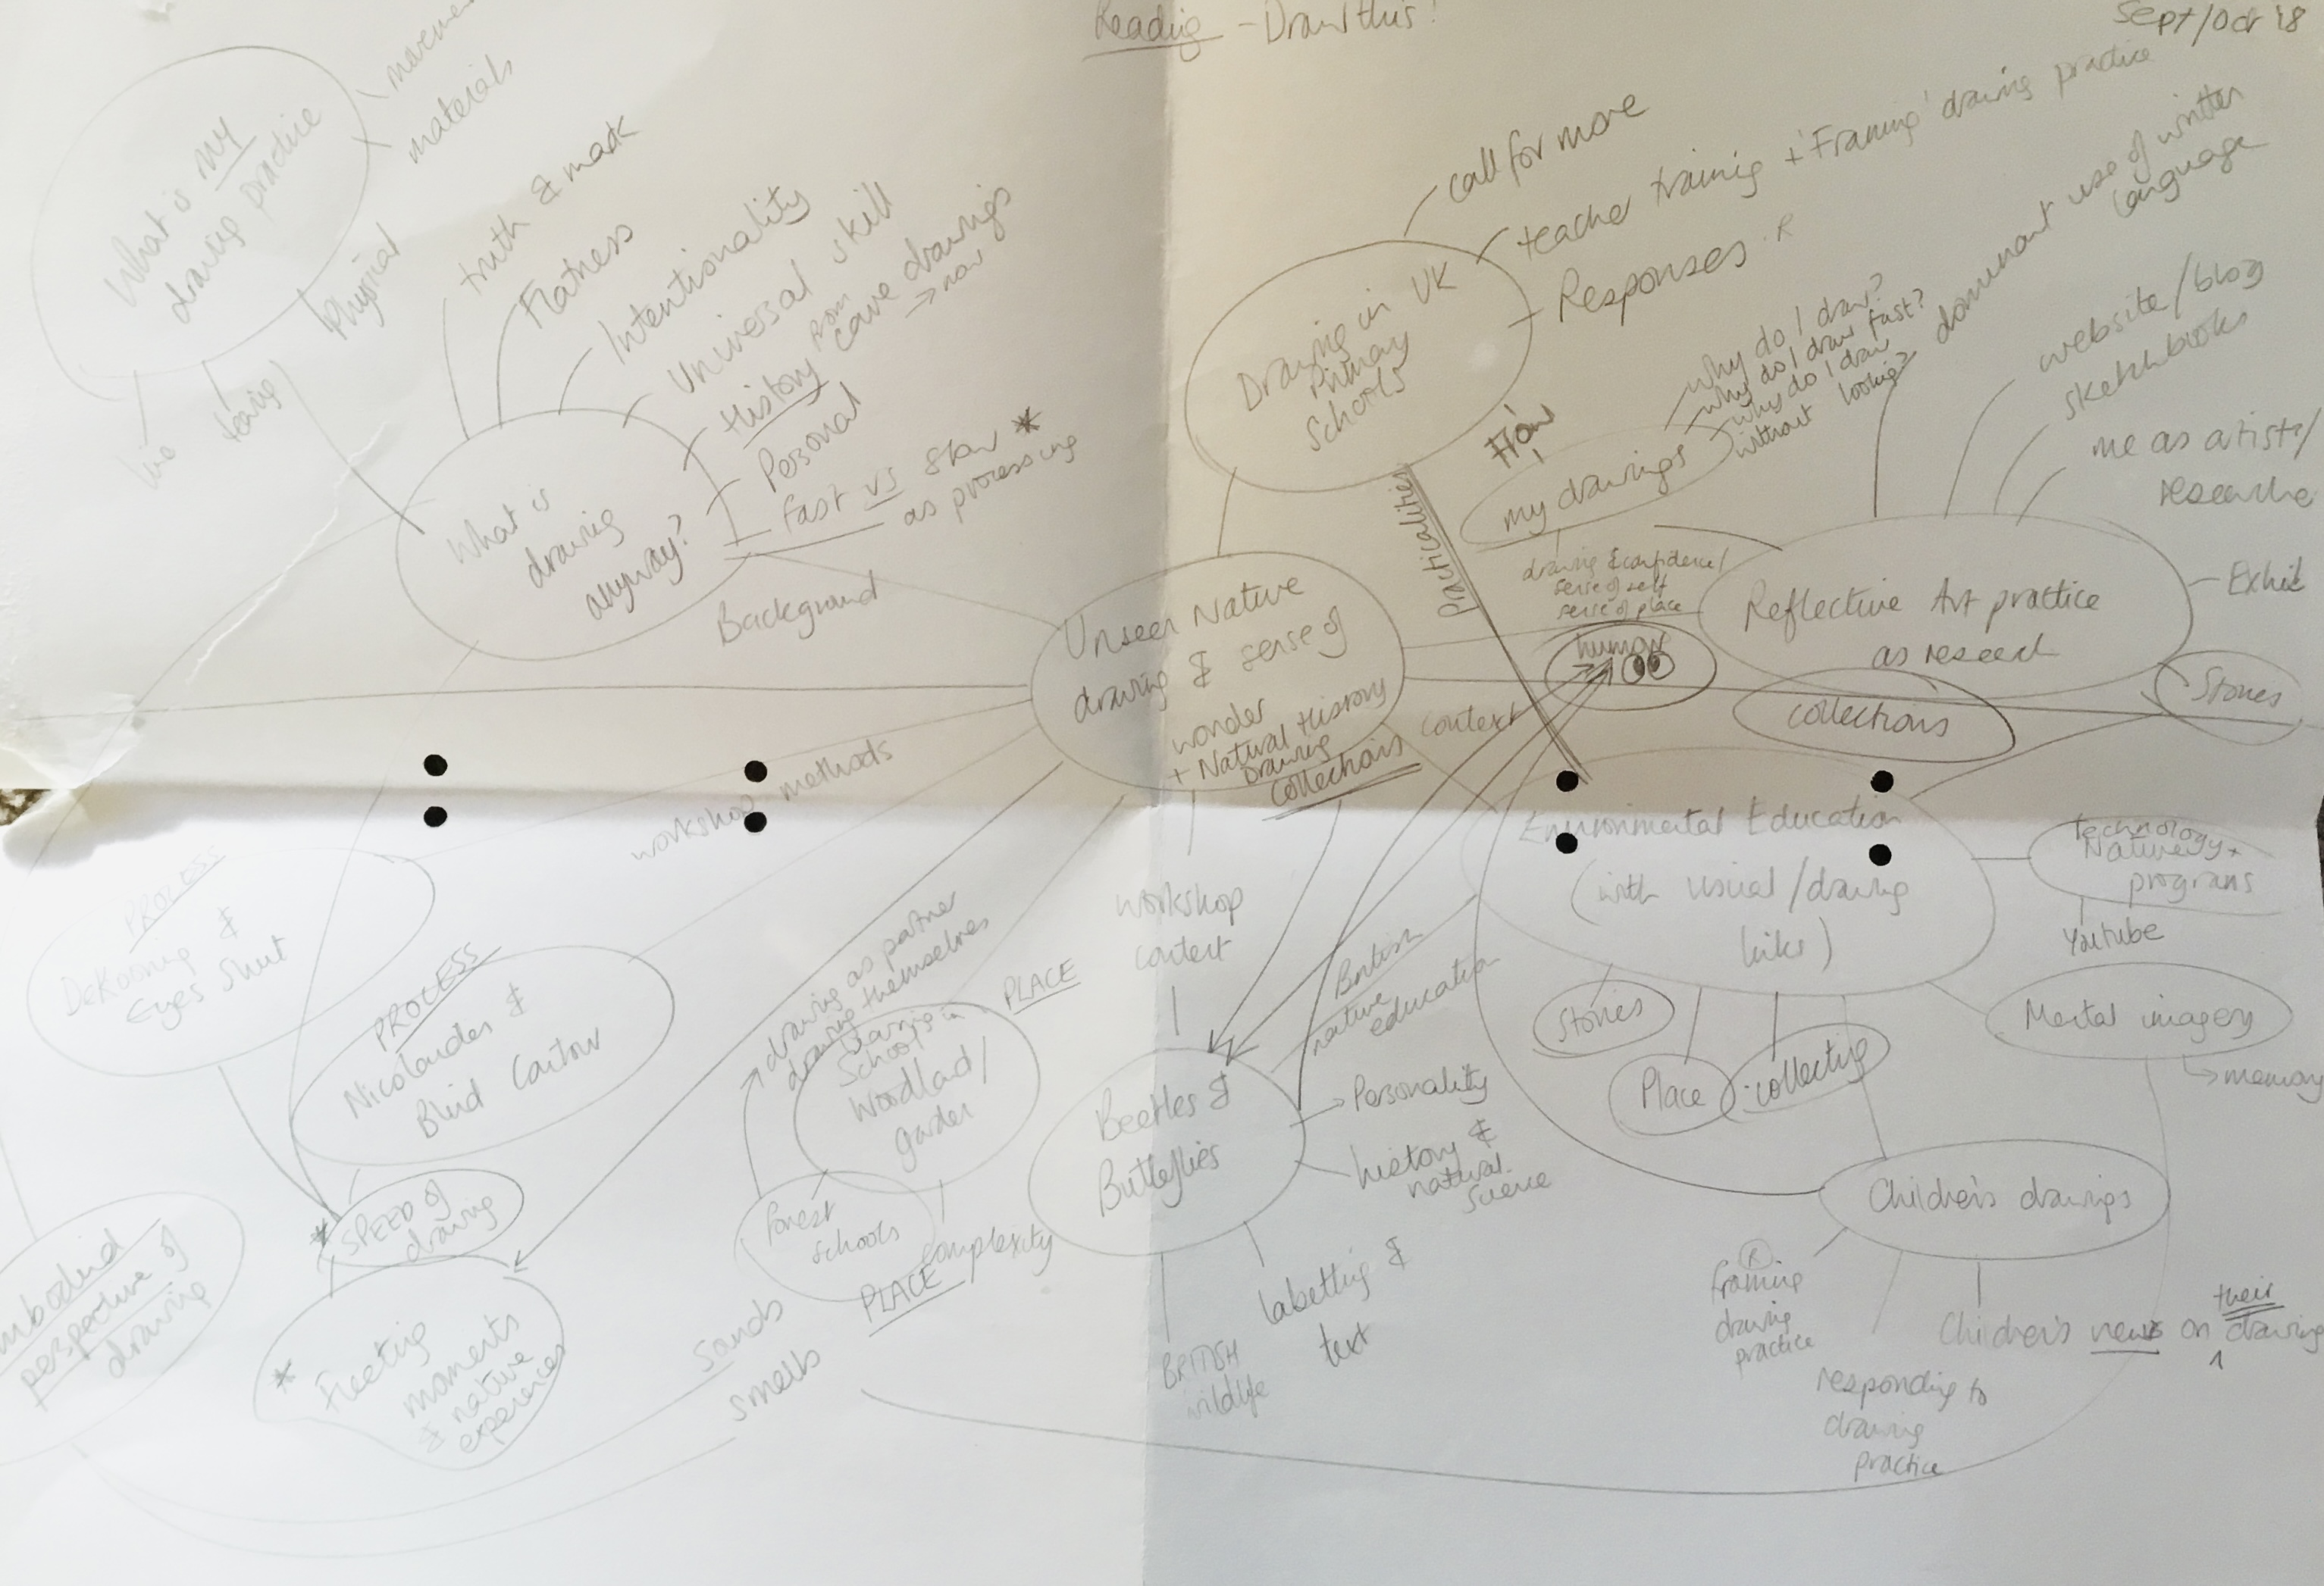 Reading - Draw this!
Sept/Oct '18
What is my
drawing practice
materials
Physical
live
truth & mark
Flatness
Intentionality
Universal skill
History from
cave drawings
→ now
Personal
Fast vs slow *
as processing
What is
drawing
anyway?
Background
call for more
teacher training + 'Framing' drawing practice
Responses . R
Drawing in UK
Primary
Schools
Practicalities
How
my drawings
why do I draw?
why do I draw fast?
why do I draw
without looking?
drawing & confidence/
sense of self
sense of place
human
dominant use of written
language
website/blog
sketchbooks
me as artist/
Reflective Art practice
as research
Exhib
Stories
collections
Unseen Nature
drawing & sense of
wonder
+ Natural History
Drawing
Collections
context
workshop methods
PROCESS
DeKooning &
Eyes Shut
PROCESS
Nicolaides &
Blind Contour
* SPEED of
drawing
* Fleeting
moments
& nature
experiences
perspective of
drawing
drawing as partner
drawing themselves
PLACE
Learning in
School
Woodland/
garden
forest
schools
complexity
PLACE
Sounds
smells
workshop
context
Beetles &
Butterflies
British
nature
education
Personality
history &
natural
science
labelling &
text
BRITISH
wildlife
Environmental Education
(with visual/drawing
links)
technology
Nature +
programs
Youtube
Mental imagery
→ memory
Stories
Place
collecting
Children's drawings
R
framing
drawing
practice
responding to
drawing
practice
their
Children's views on drawing